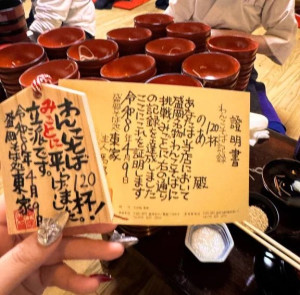 わんこそば120杯!
みごとに平らげました
立派です。
令和8年4月9日
盛岡 東家
證明書
わんこそば
120杯
のあ 殿
あなたは当店において
盛岡名物わんこそばに
挑戦みごと右の通り
の記録を達成しました
のでこれを証明します
令和8年4月9日
東家